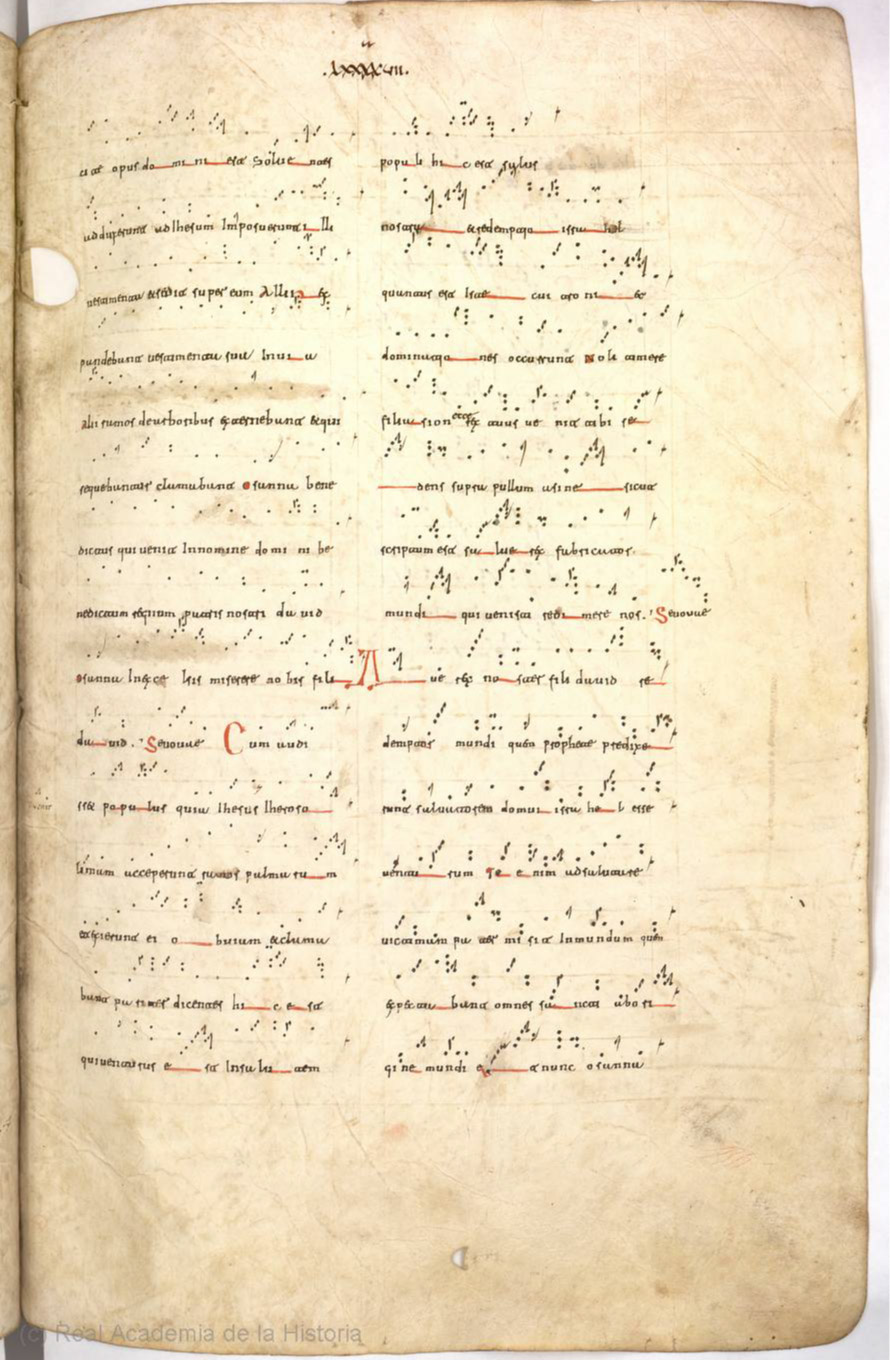 .LXXXXVII.
cias opus domini est Solue ntes
adduxerunt ad Ihesum Imposuerunt illi
uestimenta & sedit super eum Alii ex
pandebant uestimenta sua In uia
alii ramos de arboribus externebant & qui
sequebantur clamabant osanna bene
dictus qui uenit In nomine domini be
nedictum regnum patris nostri dauid
osanna In excelsis miserere nobis fili
dauid. Seuouae Cum audi
sset populus quia Ihesus Iheroso
limam acceperunt ramos palmarum
et exierunt ei obuiam & clama
bant pueri dicentes hic est
qui uenturus est In salutem
populi hic est salus
nostra & redemptio israhel
quantus est Iste cui troni &
dominationes occurrunt Noli timere
filia sion ecce rex tuus uenit tibi se
dens super pullum asine sicut
scriptum est salue rex fabricator
mundi qui uenisti redimere nos. Seuouae
Aue rex noster fili dauid re
demptor mundi quem prophete predixe
runt saluatorem domui israhel esse
uenturum Te enim ad salutare
uictimam pater misit In mundum quem
expectabant omnes sancti ab ori
gine mundi et nunc osanna
(c) Real Academia de la Historia